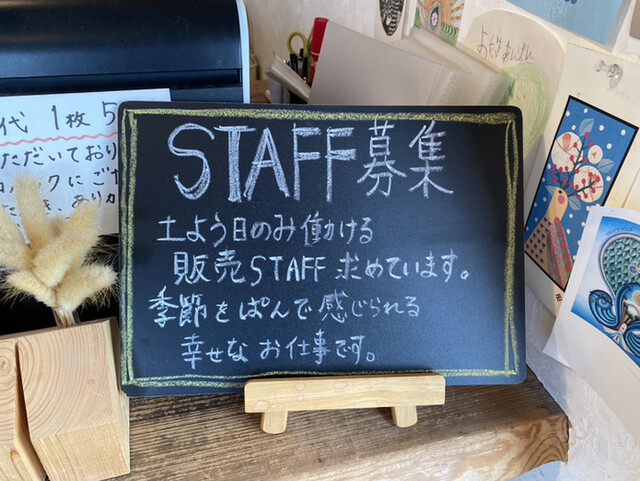 STAFF募集
土よう日のみ働ける
販売STAFF求めています。
季節をぱんで感じられる
幸せなお仕事です。
代 1枚5
ただいており